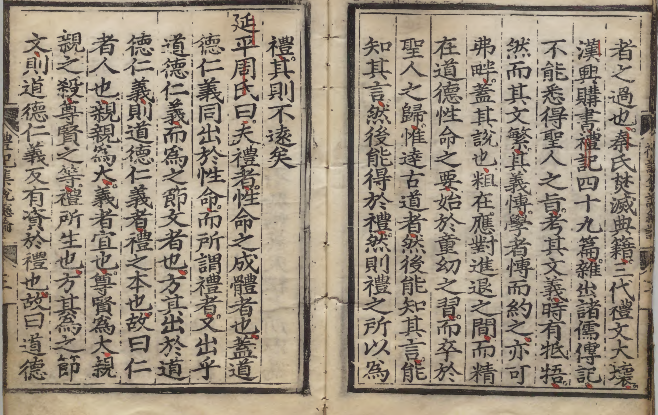 者之過也秦氏焚滅典籍三代禮文大壞
漢興購書禮記四十九篇雜出諸儒傳記
不能悉得聖人之旨考其文義時有牴牾
然而其文繁其義博學者博而約之亦可
弗畔蓋其說也粗在應對進退之間而精
在道德性命之要始於童幼之習而卒於
聖人之歸惟達古道者然後能知其言能
知其言然後能得於禮然則禮之所以為
禮其則不遠矣
延平周氏曰夫禮者性命之成體者也蓋道
德仁義同出於性命而所謂禮者又出乎
道德仁義而為之節文者也方其出於道
德仁義則道德仁義者禮之本也故曰仁
者人也親親為大義者宜也尊賢為大親
親之殺尊賢之等禮所生也方其為之節
文則道德仁義反有資於禮也故曰道德
禮記集說總論